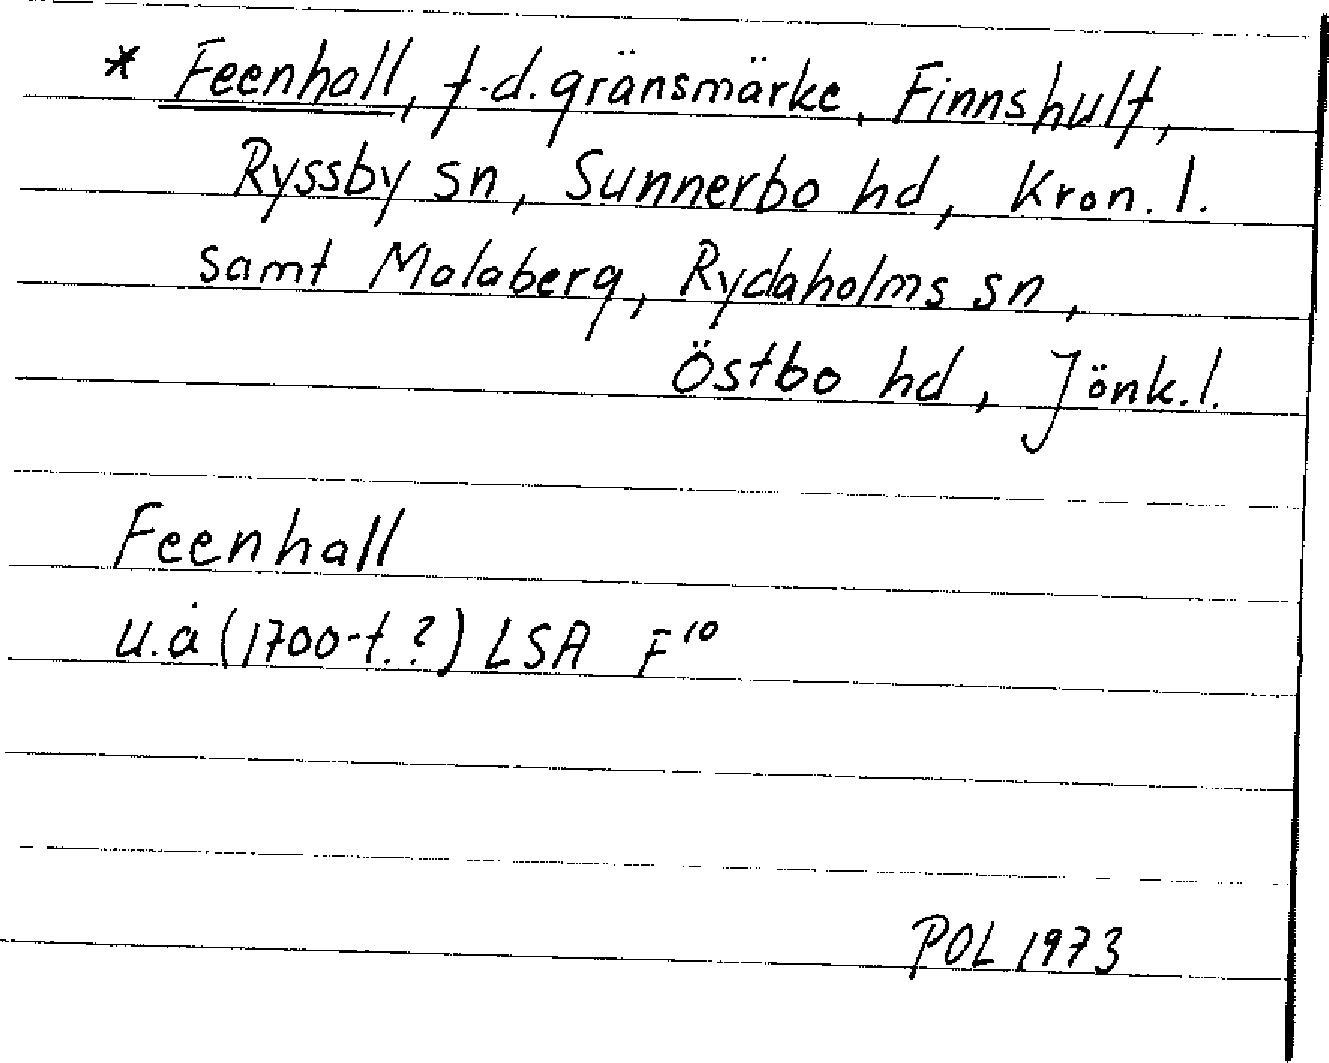 * Feenhall, f.d. gränsmärke, Finnshult,
Ryssby sn, Sunnerbo hd, Kron. l.
samt Malaberg, Rydaholms sn,
Östbo hd, Jönk. l.
Feenhall
u.å (1700-t.?) LSA F¹⁰
POL 1973